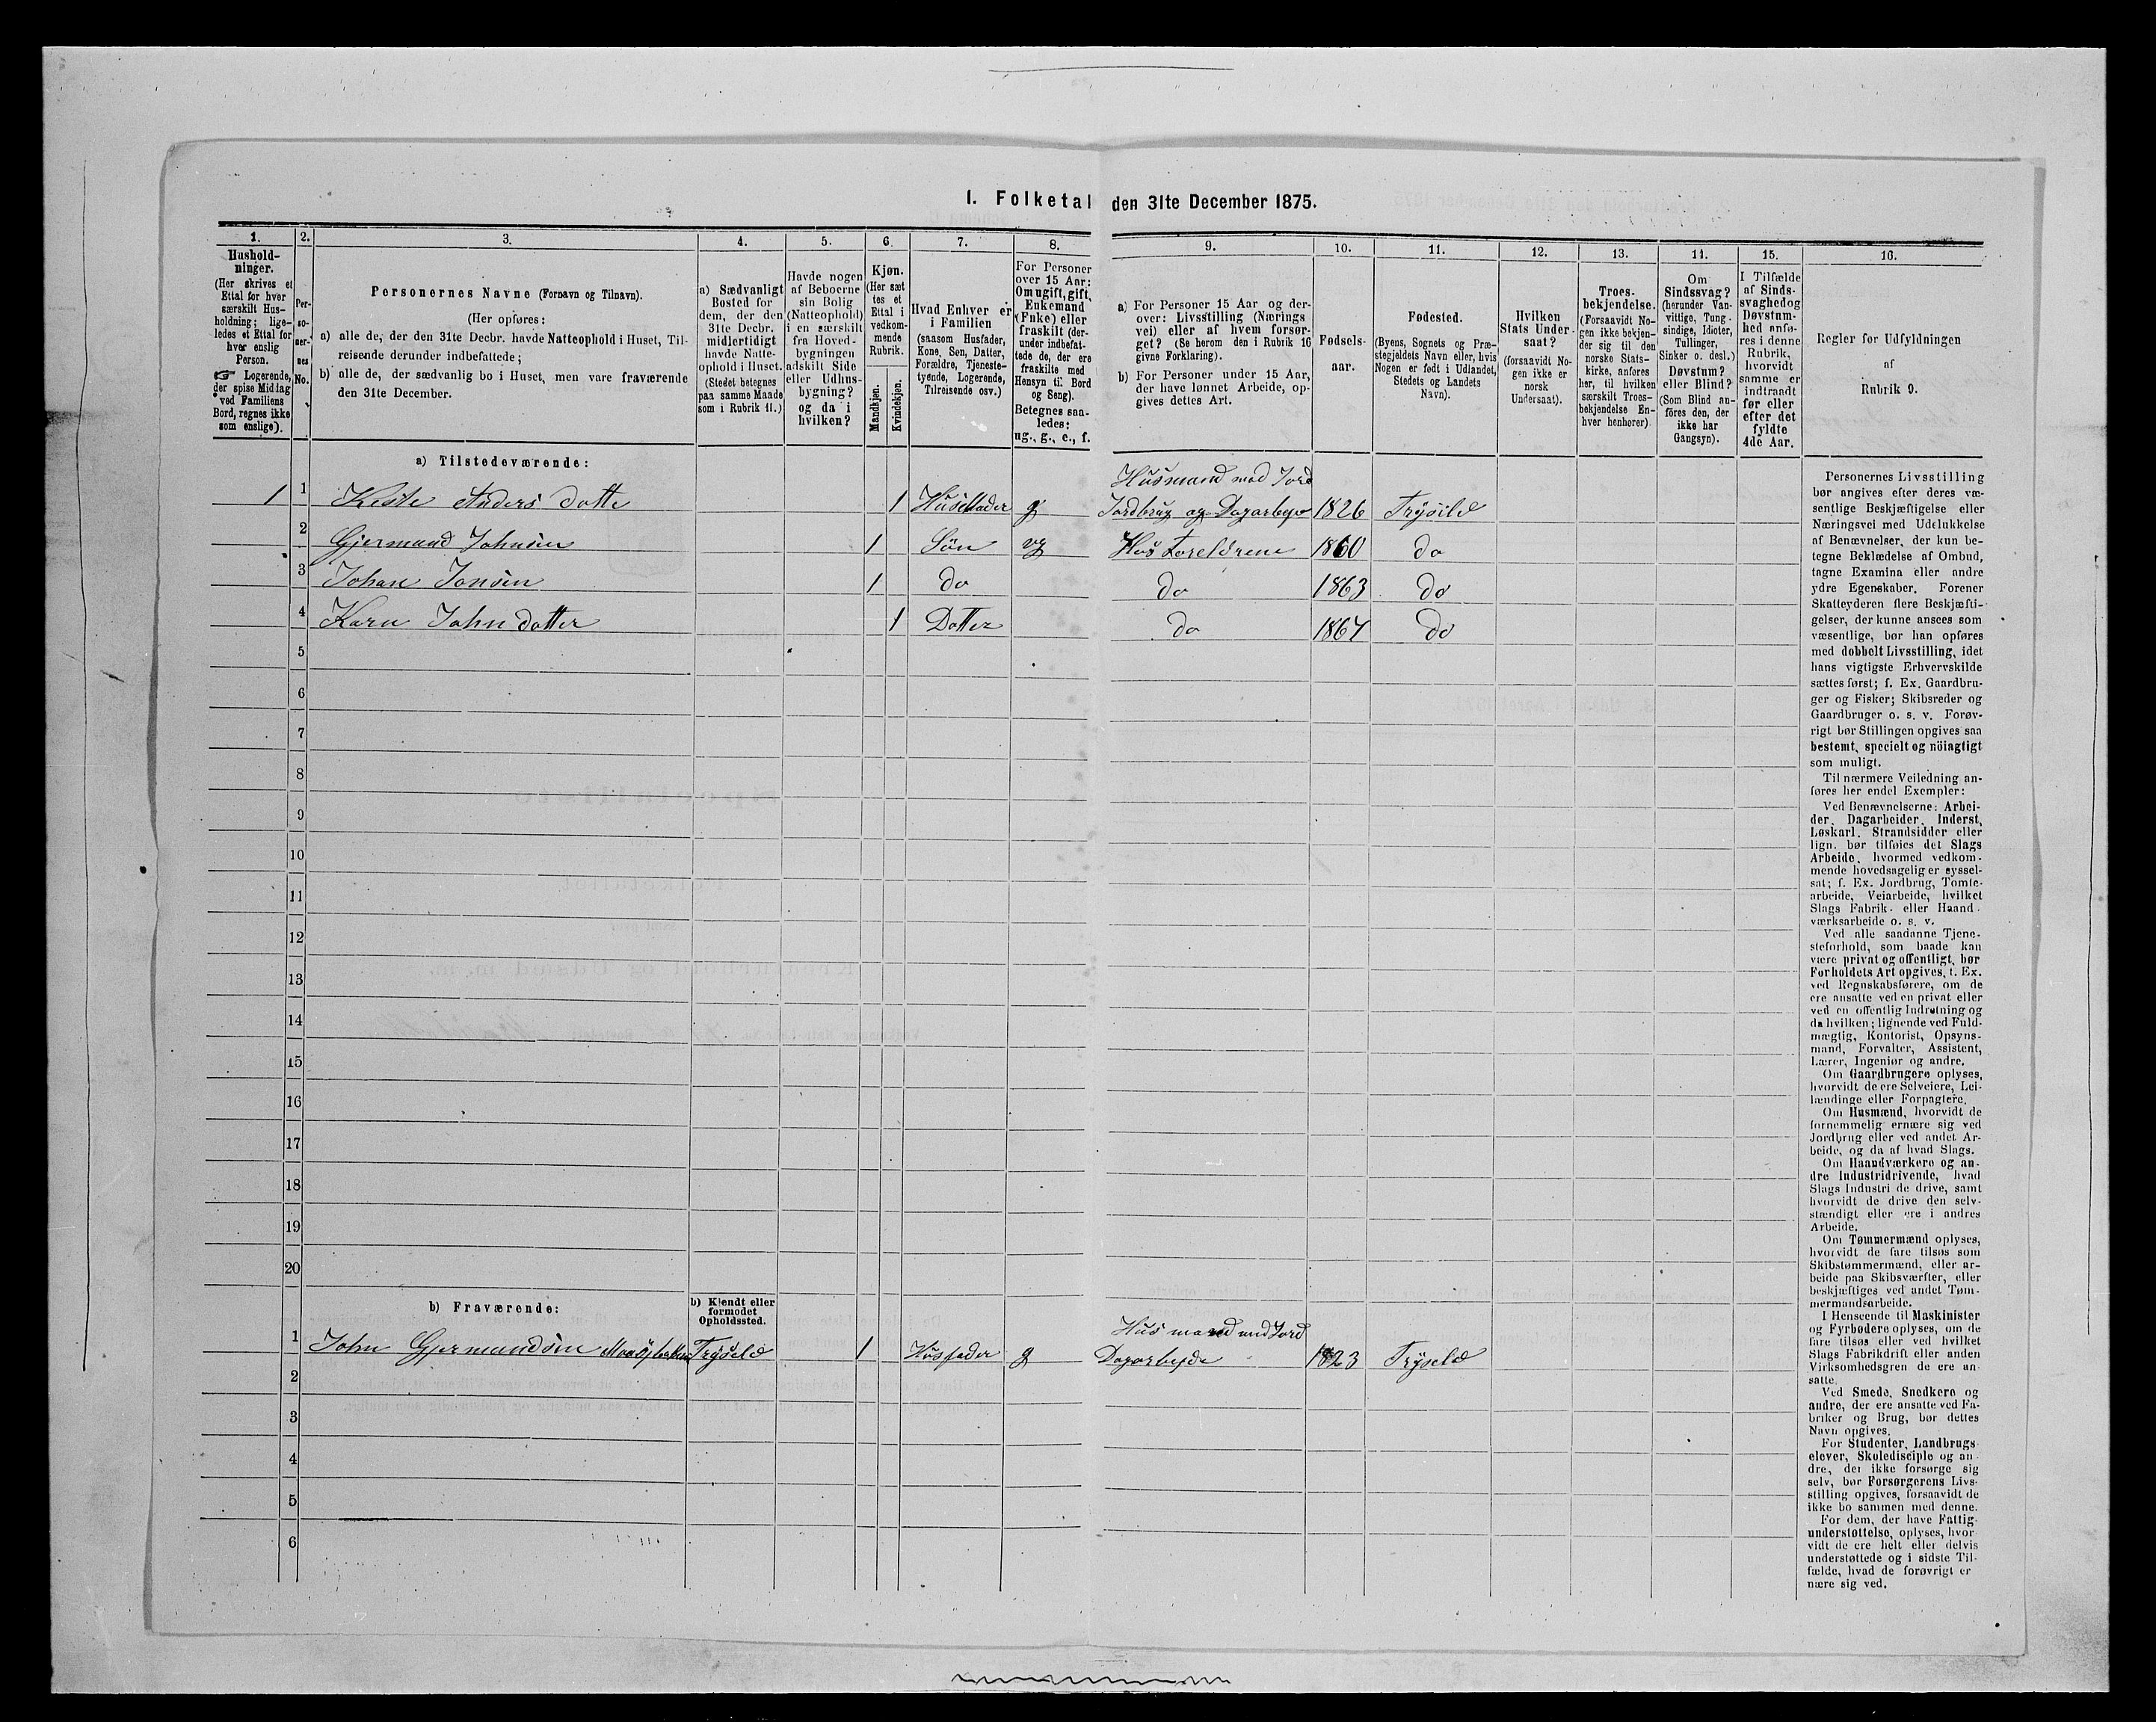 I. Folketal den 31te December 1875.
1. 2. 3. 4. 5. 6. 7. 8. 9. 10. 11. 12. 13. 14. 15. 16.
Hushold-
ninger.
(Her skrives et
Ettal for hver
særskilt Hus-
holdning; lige-
ledes et Ettal for
hver enslig
Person.
☞ Logerende,
der spise Middag
ved Familiens
Bord, regnes ikke
som enslige).
Per-
so-
ner-
nes
No.
Personernes Navne (Fornavn og Tilnavn).
(Her opføres:
a) alle de, der den 31te Decbr. havde Natteophold i Huset, Til-
reisende derunder indbefattede;
b) alle de, der sædvanlig bo i Huset, men vare fraværende
den 31te December.
a) Sædvanligt
Bosted for
dem, der den
31te Decbr.
midlertidigt
havde Natte-
ophold i Huset.
(Stedet betegnes
paa samme Maade
som i Rubrik 11.)
Havde nogen
af Beboerne
sin Bolig
(Natteophold)
i en særskilt
fra Hoved-
bygningen
adskilt Side
eller Udhus-
bygning?
og da i
hvilken?
Kjøn.
(Her sæt
tes et
Ettal i
vedkom-
mende
Rubrik.
Mandkjøn.
Kvindekjøn.
Hvad Enhver er
i Familien
(saasom Husfader,
Kone, Søn, Datter,
Forældre, Tjeneste-
tyende, Logerende,
Tilreisende osv.)
For Personer
over 15 Aar:
Om ugift, gift,
Enkemand
(Enke) eller
fraskilt (der-
under indbefat-
tede de, der ere
fraskilte med
Hensyn til Bord
og Seng).
Betegnes saa-
ledes:
ug., g., e., f.
a) For Personer 15 Aar og der-
over: Livsstilling (Nærings
vei) eller af hvem forsør-
get? (Se herom den i Rubrik 16
givne Forklaring).
b) For Personer under 15 Aar,
der have lønnet Arbeide, op-
gives dettes Art.
Fødsels-
aar.
Fødested.
(Byens, Sognets og Præ-
stegjeldets Navn eller, hvis
Nogen er født i Udlandet,
Stedets og Landets
Navn).
Hvilken
Stats Under-
saat?
(forsaavidt No-
gen ikke er
norsk
Undersaat).
Troes-
bekjendelse.
(Forsaavidt No-
gen ikke bekjen-
der sig til den
norske Stats-
kirke, anføres
her, til hvilken
særskilt Troes-
bekjendelse En-
hver henhører).
Om
Sindssvag?
(herunder Van-
vittige, Tung-
sindige, Idioter,
Tullinger,
Sinker o. desl.)
Døvstum?
eller Blind?
(Som Blind an-
föres den, der
ikke har
Gangsyn).
I Tilfælde
af Sinds-
svaghed og
Døvstum-
hed anfø-
res i denne
Rubrik,
hvorvidt
samme er
indtraadt
før eller
efter det
fyldte
4de Aar.
Regler for Udfyldningen
af
Rubrik 9.
a) Tilstedeværende:
Husmand med Jord
1 1 Anders datte 1 g Jordbrug og Dagarbeyd 1826 Trÿsild
2 Gjermand Johnsen 1 Sön ug Hos Foreldrene 1860 do
3 Johan Jonsen 1 do do 1863 do
4 Karn John datter 1 Datter do 1867 do
5
6
7
8
9
10
11
12
13
14
15
16
17
18
19
20
b) Fraværende:
b) Kjendt eller
formodet
Opholdssted.
Husmand med Jord
1 John Gjermundsen Trÿseld 1 Husfader g Dagarbeyde 1823 Trÿseld
2
3
4
5
6
Personernes Livsstilling
bør angives efter deres væ-
sentlige Beskjæftigelse eller
Næringsvei med Udelukkelse
af Benævnelser, der kun be-
tegne Beklædelse af Ombud,
tagne Examina eller andre
ydre Egenskaber. Forener
Skatteyderen flere Beskjæfti-
gelser, der kunne ansees som
væsentlige, bør han opføres
med dobbelt Livsstilling, idet
hans vigtigste Erhvervskilde
sættes først; f. Ex. Gaardbru-
ger og Fisker; Skibsreder og
Gaardbruger o. s. v. Forøv-
rigt bør Stillingen opgives saa
bestemt, specielt og nöiagtigt
som muligt.
Til nærmere Veiledning an-
føres her endel Exempler:
Ved Benævnelserne: Arbei-
der, Dagarbeider, Inderst,
Løskarl, Strandsidder eller
lign. bør tilføies det Slags
Arbeide, hvormed vedkom-
mende hovedsagelig er syssel-
sat; f. Ex. Jordbrug, Tomte-
arbeide, Veiarbeide, hvilket
Slags Fabrik- eller Haand-
værksarbeide o. s. v.
Ved alle saadanne Tjene-
steforhold, som baade kan
være privat og offentligt, bør
Forholdets Art opgives, f. Ex.
ved Regnskabsførere, om de
ere ansatte ved en privat eller
ved en offentlig Indretning og
da hvilken; lignende ved Fuld-
mægtig, Kontorist, Opsyns-
mand, Forvalter, Assistent,
Lærer, Ingeniør og andre.
Om Gaardbrugere oplyses,
hvorvidt de ere Selveiere, Lei-
lændinge eller Forpagtere.
Om Husmænd, hvorvidt de
fornemmelig ernære sig ved
Jordbrug eller ved andet Ar-
beide, og da af hvad Slags.
Om Haandværkere og an-
dre Industridrivende, hvad
Slags Industri de drive, samt
hvorvidt de drive den selv-
stændigt eller ere i andres
Arbeide.
Om Tømmermænd oplyses,
hvorvidt de fare tilsøs som
Skibstømmermænd, eller ar-
beide paa Skibsværfter, eller
beskjæftiges ved andet Tøm-
mermandsarbeide.
I Henseende til Maskinister
og Fyrbødere oplyses, om de
fare tilsøs eller ved hvilket
Slags Fabrikdrift eller anden
Virksomhedsgren de ere an-
satte.
Ved Smede, Snedkere og
andre, der ere ansatte ved Fa-
briker og Brug, bør dettes
Navn opgives.
For Studenter, Landbrugs-
elever, Skoledisciple og an-
dre, der ikke forsørge sig
selv, bør Forsørgerens Livs-
stilling opgives, forsaavidt de
ikke bo sammen med denne.
For dem, der have Fattig-
understøttelse, oplyses, hvor-
vidt de ere helt eller delvis
understøttede og i sidste Til-
fælde, hvad de forøvrigt er
nære sig ved.